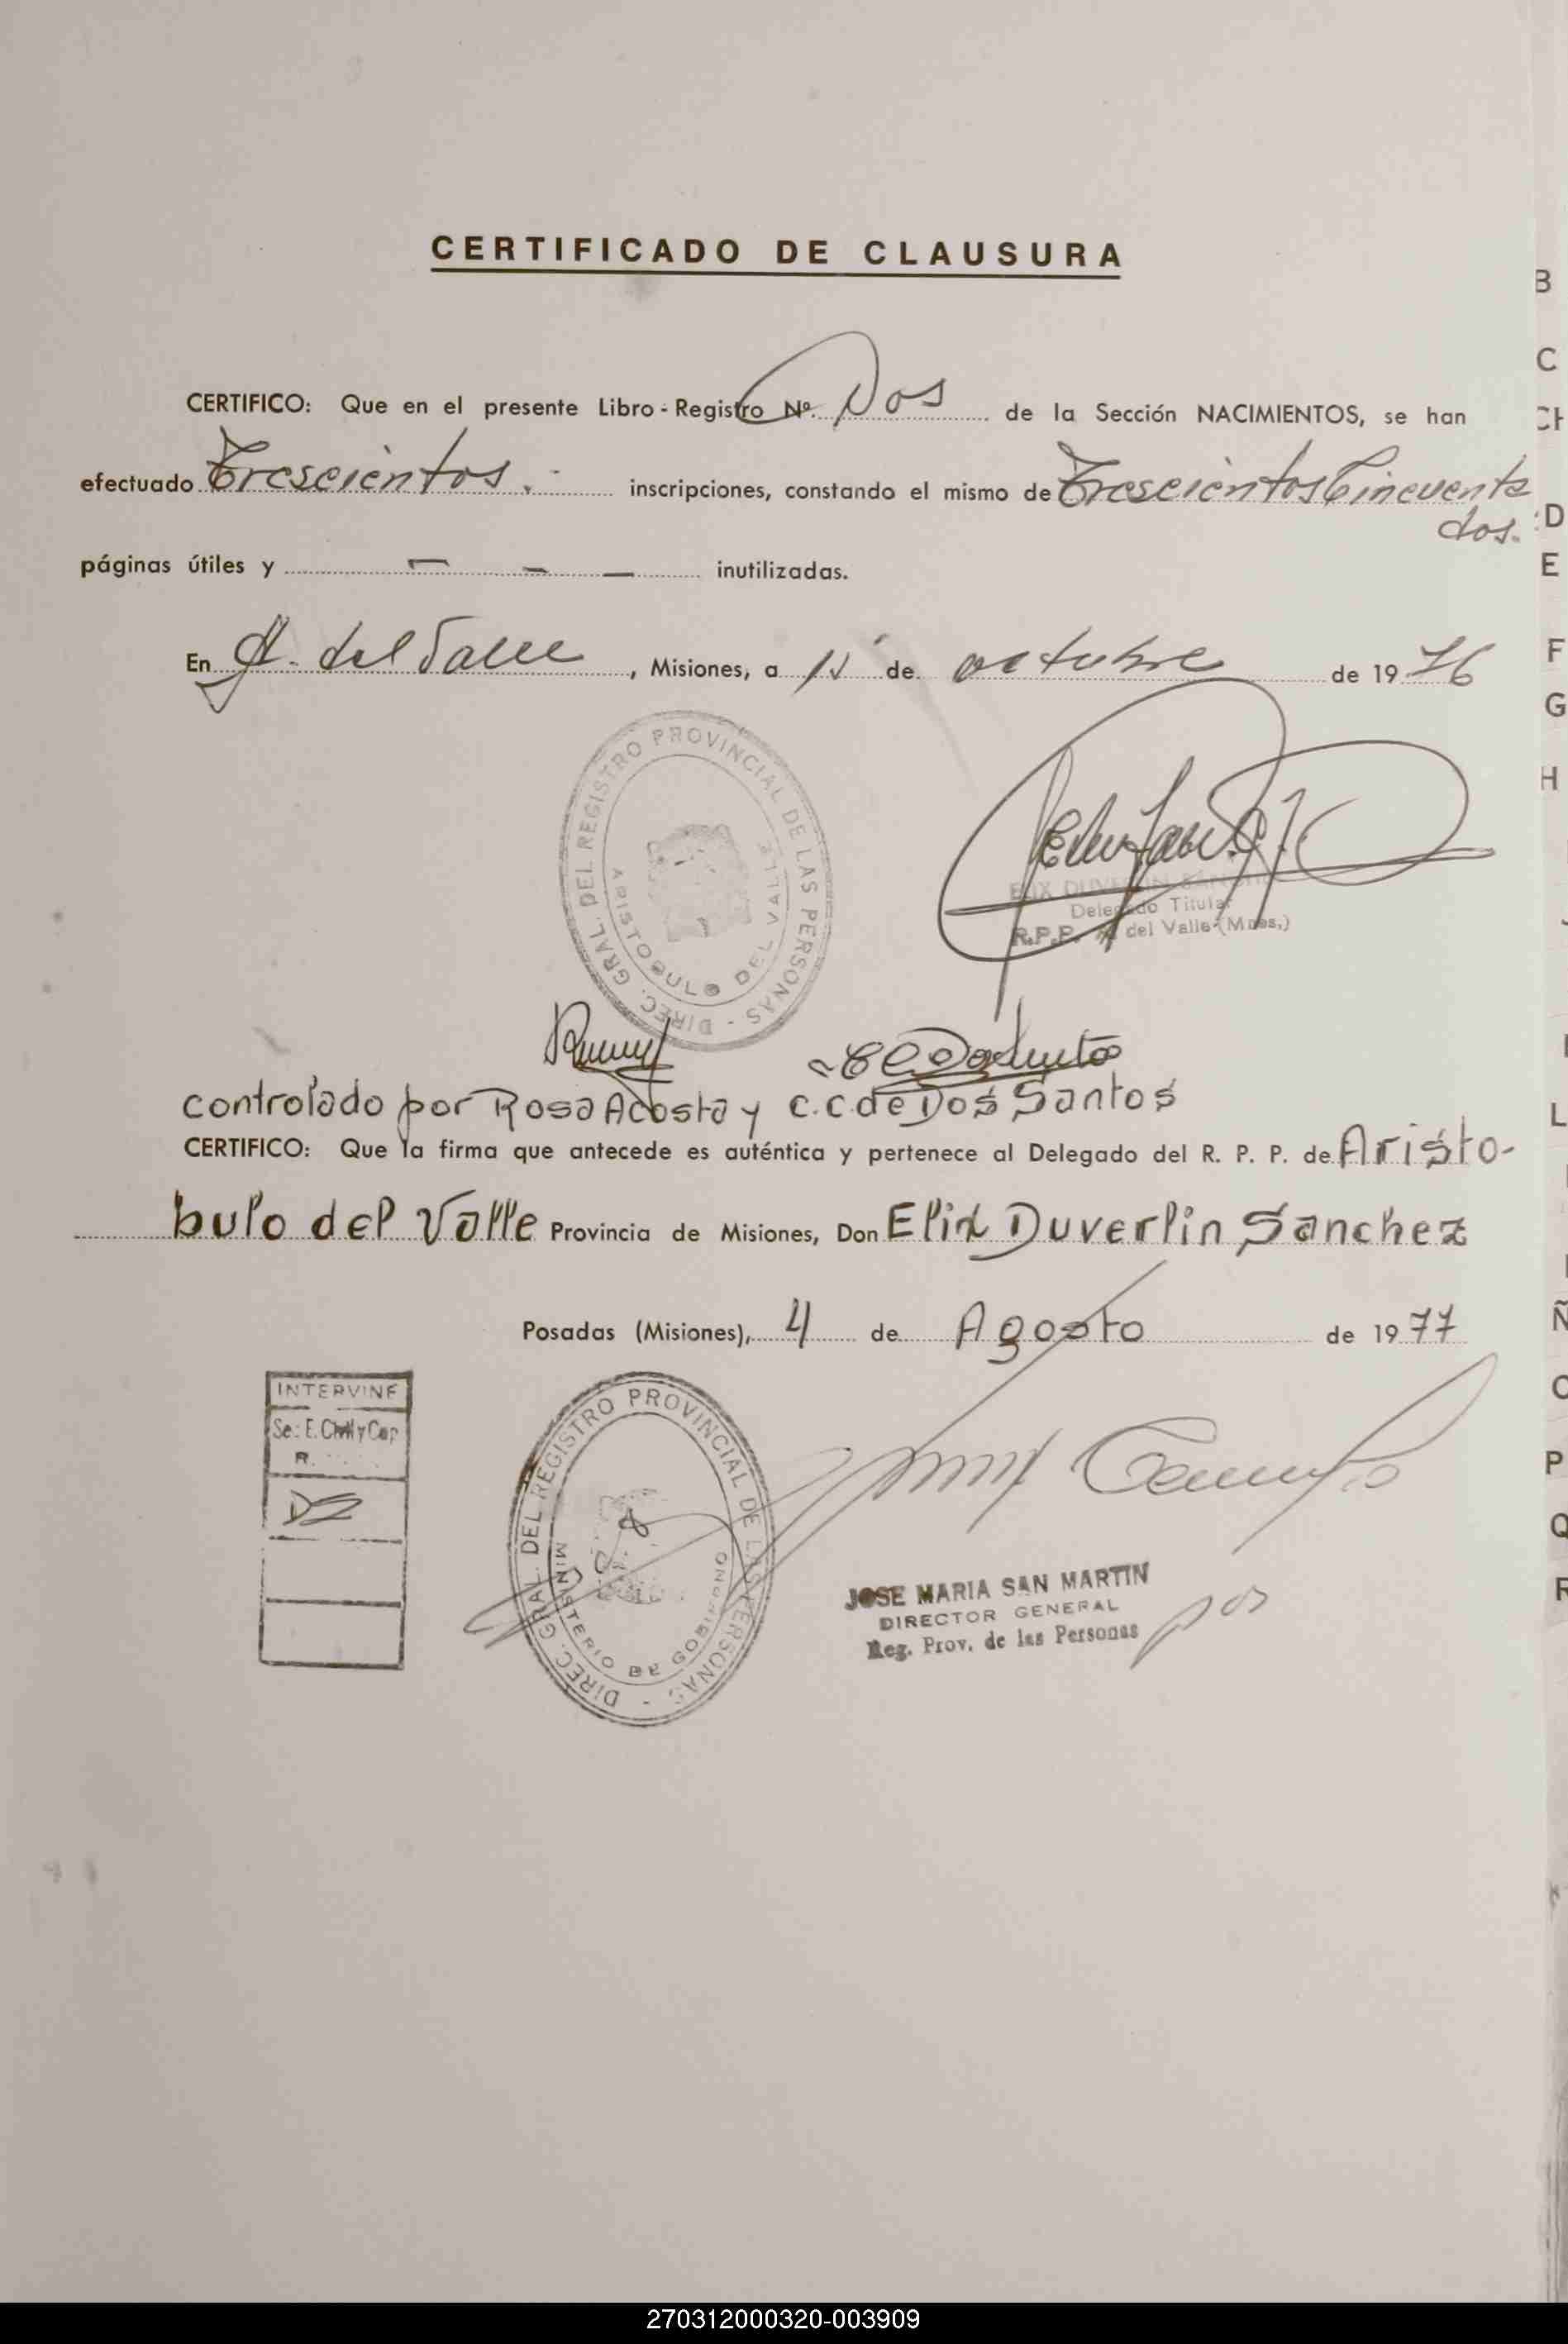 CERTIFICADO DE CLAUSURA
CERTIFICO: Que en el presente Libro-Registro Nº. Dos de la Sección NACIMIENTOS, se han
efectuado Trescientos.- inscripciones, constando el mismo de Trescientos Cincuenta
dos.
páginas útiles y — — — inutilizadas.
En A. del Valle, Misiones, a de octubre de 1976
DIREC. GRAL. DEL REGISTRO PROVINCIAL DE LAS PERSONAS -
ARISTOBULO DEL VALLE
ELIX DUVERLIN SANCHEZ
Delegado Titular
R.P.P. A. del Valle-(Mnes,)
controlado por Rosa Acosta y C.C. de Dos Santos
CERTIFICO: Que la firma que antecede es auténtica y pertenece al Delegado del R. P. P. de Aristo-
bulo del Valle Provincia de Misiones, Don Elix Duverlin Sanchez
Posadas (Misiones), 4 de Agosto de 1977
INTERVINE
Se: E. Civil y Cap
R.
DIREC. GRAL. DEL REGISTRO PROVINCIAL DE LAS PERSONAS -
MINISTERIO DE GOBIERNO
JOSE MARIA SAN MARTIN
DIRECTOR GENERAL
Reg. Prov. de las Personas
B
C
CH
D
E
F
G
H
L
Ñ
O
P
Q
R
270312000320-003909